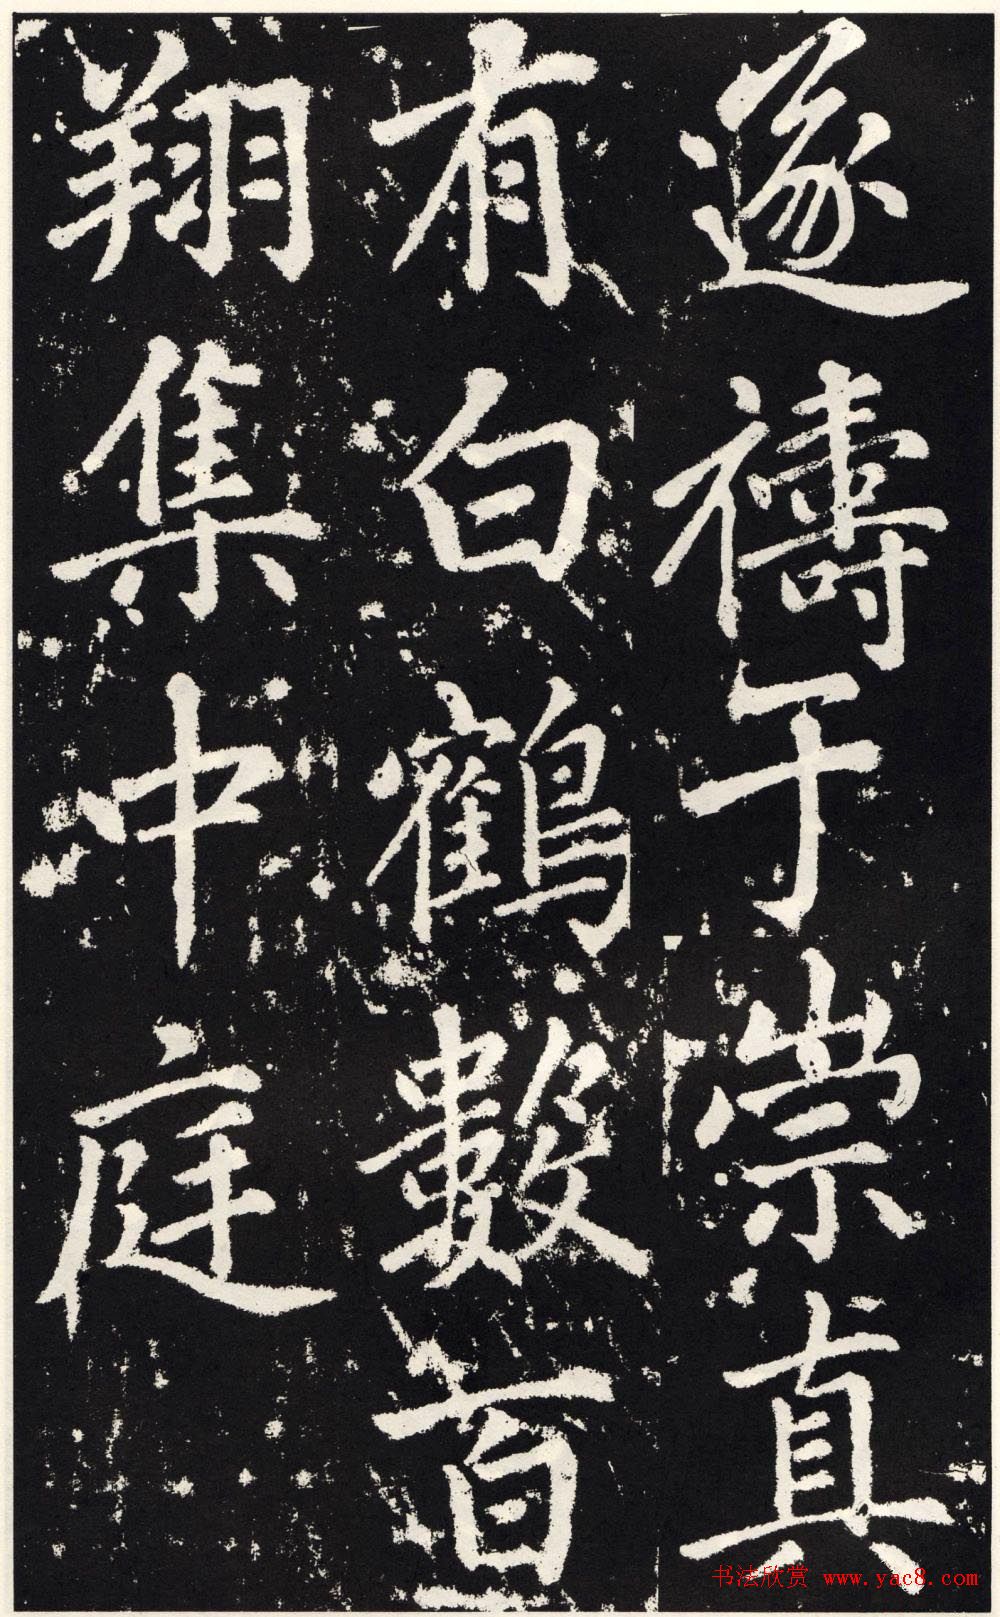 遂禱于崇真
有白鶴數百
翔集中庭
书法欣赏 www.yac8.com